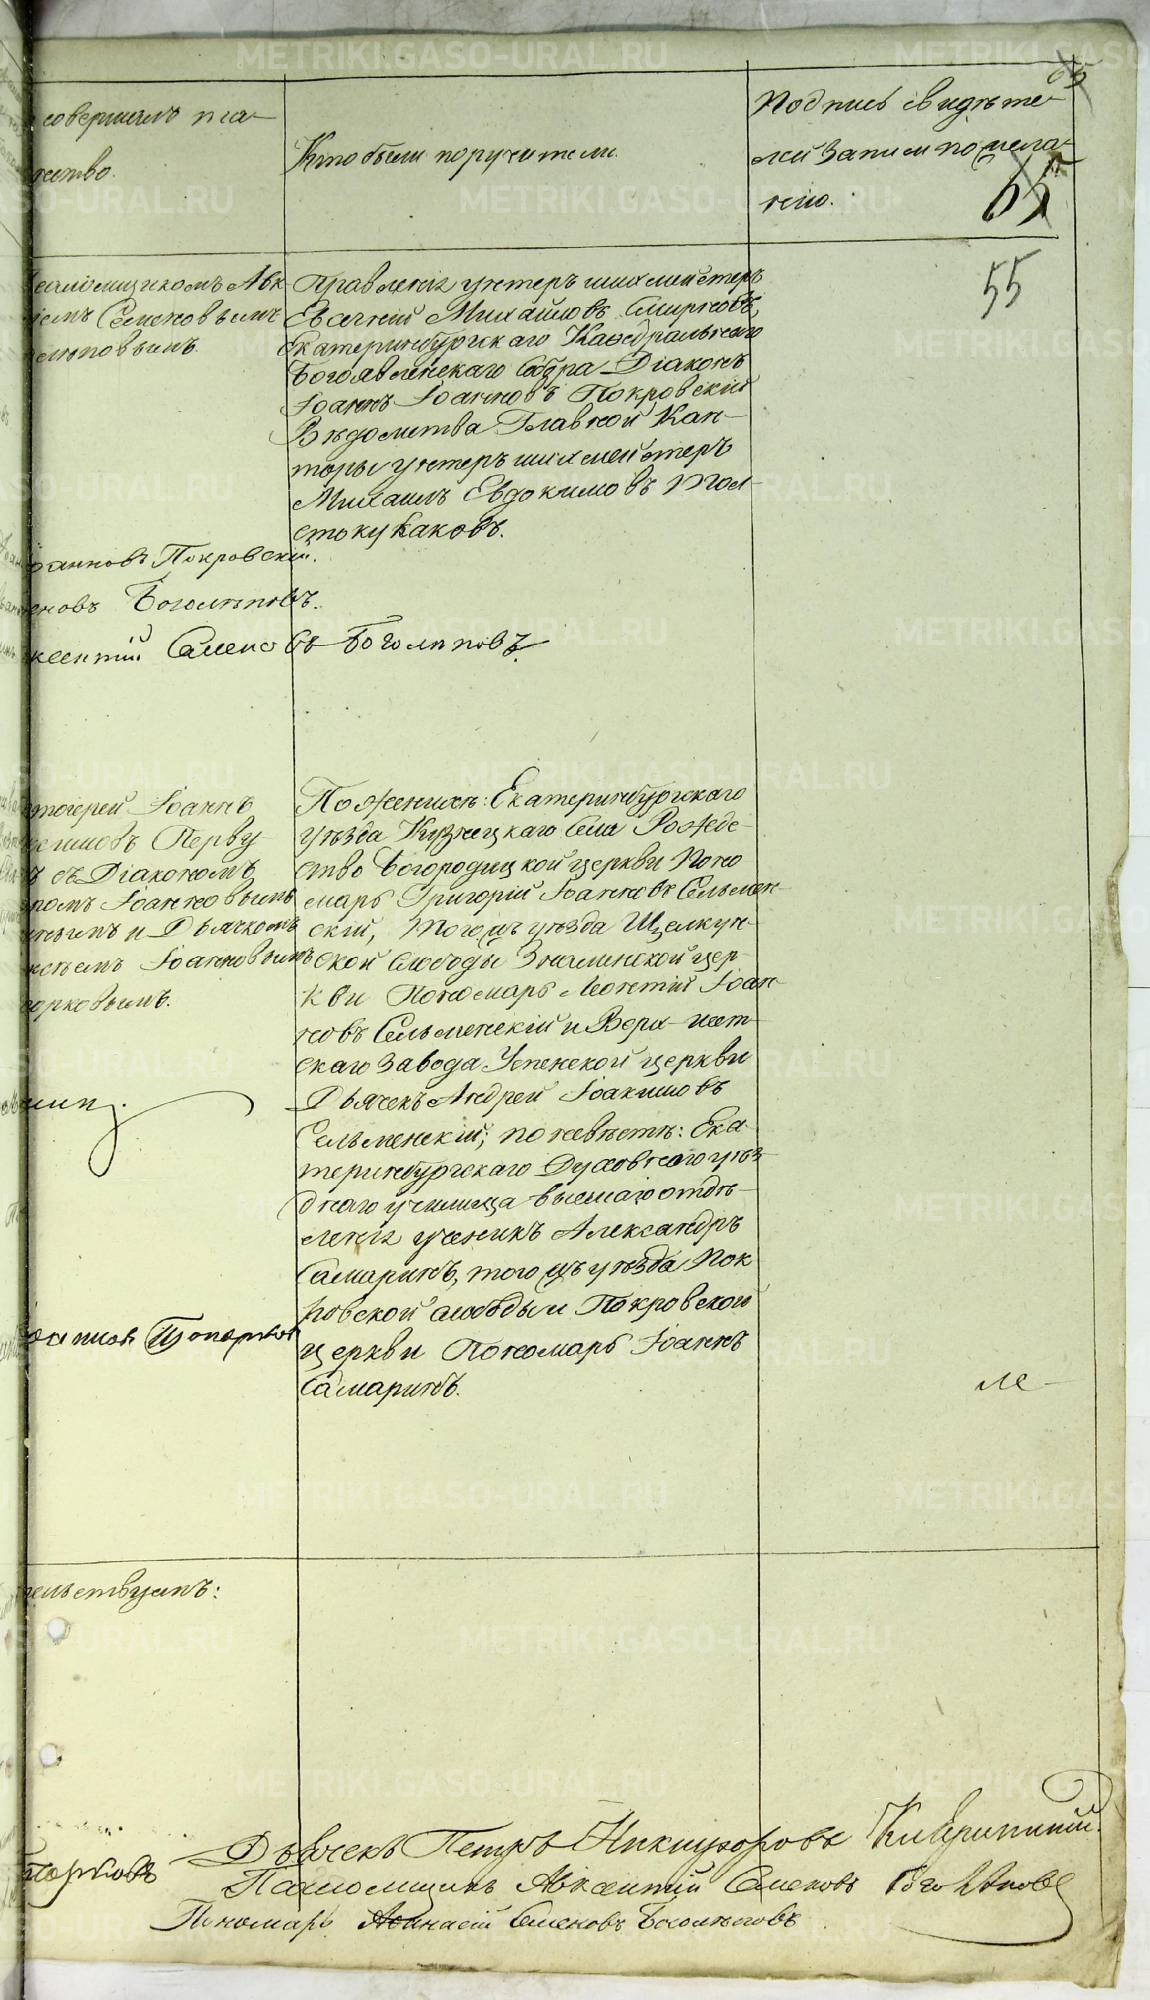 совершалъ таи-
нство.
Кто были поручители.
Подпись свидѣте-
лей записи по жела-
нію.
55
Псаломщикомъ Авк-
Семеновымъ
Боголѣповымъ.
Правленія унтеръ шихмейстеръ
Евгеній Михайловъ Смирновъ,
Екатеринбургскаго Каѳедральнаго
Богоявленскаго Собора Діаконъ
Іоаннъ Іоанновъ Покровскій
Вѣдомства Главной Кон-
торы унтеръ шихмейстеръ
Михаилъ Евдокимовъ Тол-
стокулаковъ.
Іоанновъ Покровскій.
Семеновъ Боголѣповъ.
Авксентій Семеновъ Боголѣповъ.
Протоіерей Іоаннъ
Перву
съ Діакономъ
Іоанновымъ
и Дьячкомъ
Іоанновымъ
Топорковымъ.
По женихѣ: Екатеринбургскаго
уѣзда Кузнецкаго Села Рожде-
ство Богородицкой церкви Поно
марь Григорій Іоанновъ Сельмен-
скій, того жъ уѣзда Щелкун-
ской слободы Знаменской цер-
кви Пономарь Леонтій Іоан-
новъ Сельменскій и Верх-Исет-
скаго завода Успенской церкви
Дьячекъ Андрей Іоакимовъ
Сельменскій; по невѣстѣ: Ека-
теринбургскаго Духовнаго уѣз-
днаго училища высшаго отдѣ-
ленія ученикъ Александръ
Самаринъ, того жъ уѣзда Пок
ровской слободы и Покровской
церкви Пономарь Іоаннъ
Самаринъ.
Топорковъ
тельствуемъ:
Топорковъ
Дьячекъ Петръ Никифоровъ
Псаломщикъ Авксентій Семеновъ Боголѣповъ
Пономарь Аѳанасій Семеновъ Боголѣповъ
METRIKI.GASO-URAL.RU